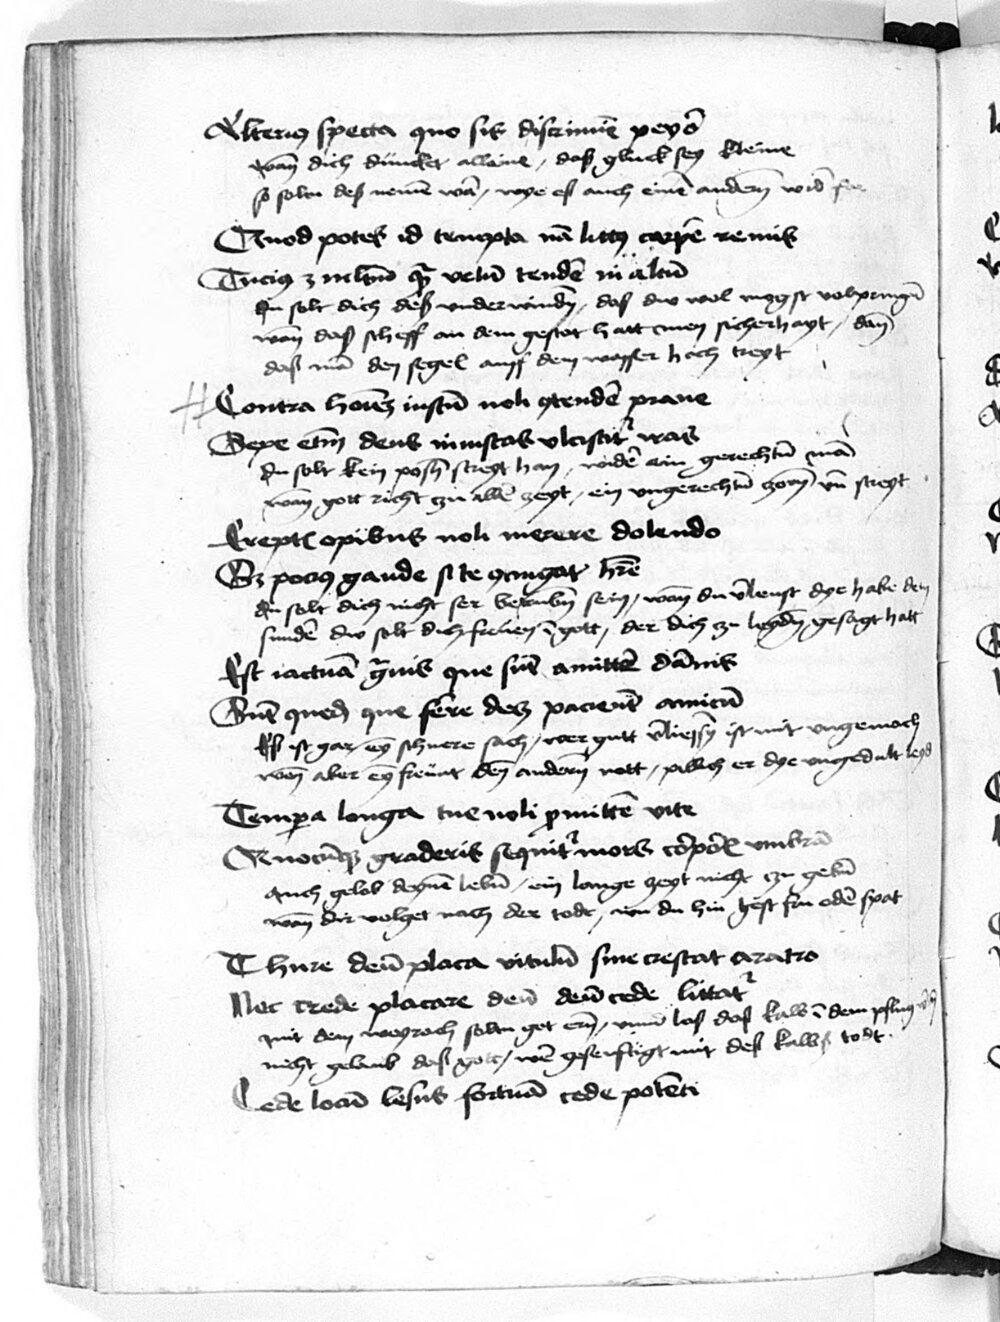 Alterius specta quo sis discrimine peyor
wan dich düncket alleine, daß gluck sey kleine
so soltu deß nemen war, wye eß auch einem andern wider far
Quod potes id tempta nam littus carpere remis
Tucius est multum quam velum tendere in altum
du solt dich deß underwinden, daß du wol mogst volpringen
wan daß scheff an dem gestat hatt meer sicherhayt, dan
daß man den segel auff dem wasser hoch treyt
Contra hominem iustum noli contendere prave
Sepe etenim deus iniustas ulciscitur iras
du solt kein poschen streyt han, wider ain gerechten man
wan gott richt czu aller zeyt, ein ungerechten zorn und streyt
Ereptis opibus noli merere dolendo
Sed pocius gaude si te contingat habere
du solt dich nicht ser betruben sein, wan du verleust dye habe dein
sunder du solt dich freuen in gott, der dich zu
Est iactura gravis que sunt amittere damnis
Sunt quedam que ferre decet pacienter amicum
Eß ist gar ein schwere sach, wer gutt verleust ist mit ungemach
wan aber ein freünt den andern nott, pillich er dye ungedult leyd
Tempora longa tue noli promittere vite
Quocumque graderis sequitur mors corporis umbram
Auch gelob deynem leben, ein lange zeyt nicht czu geben
wan dir volget nach der todt, wu du hin gest fru oder spat
Thure deum placa vitulum sine crescat aratro
Nec crede placare deum dum cede littatur
mit dem weyroch soltu got eren, und laß daß kalb in dem pflug
nicht gelaub daß gott, wer gesenftigt mit deß kalbß todt.
Cede locum lesus fortuna cede potenti